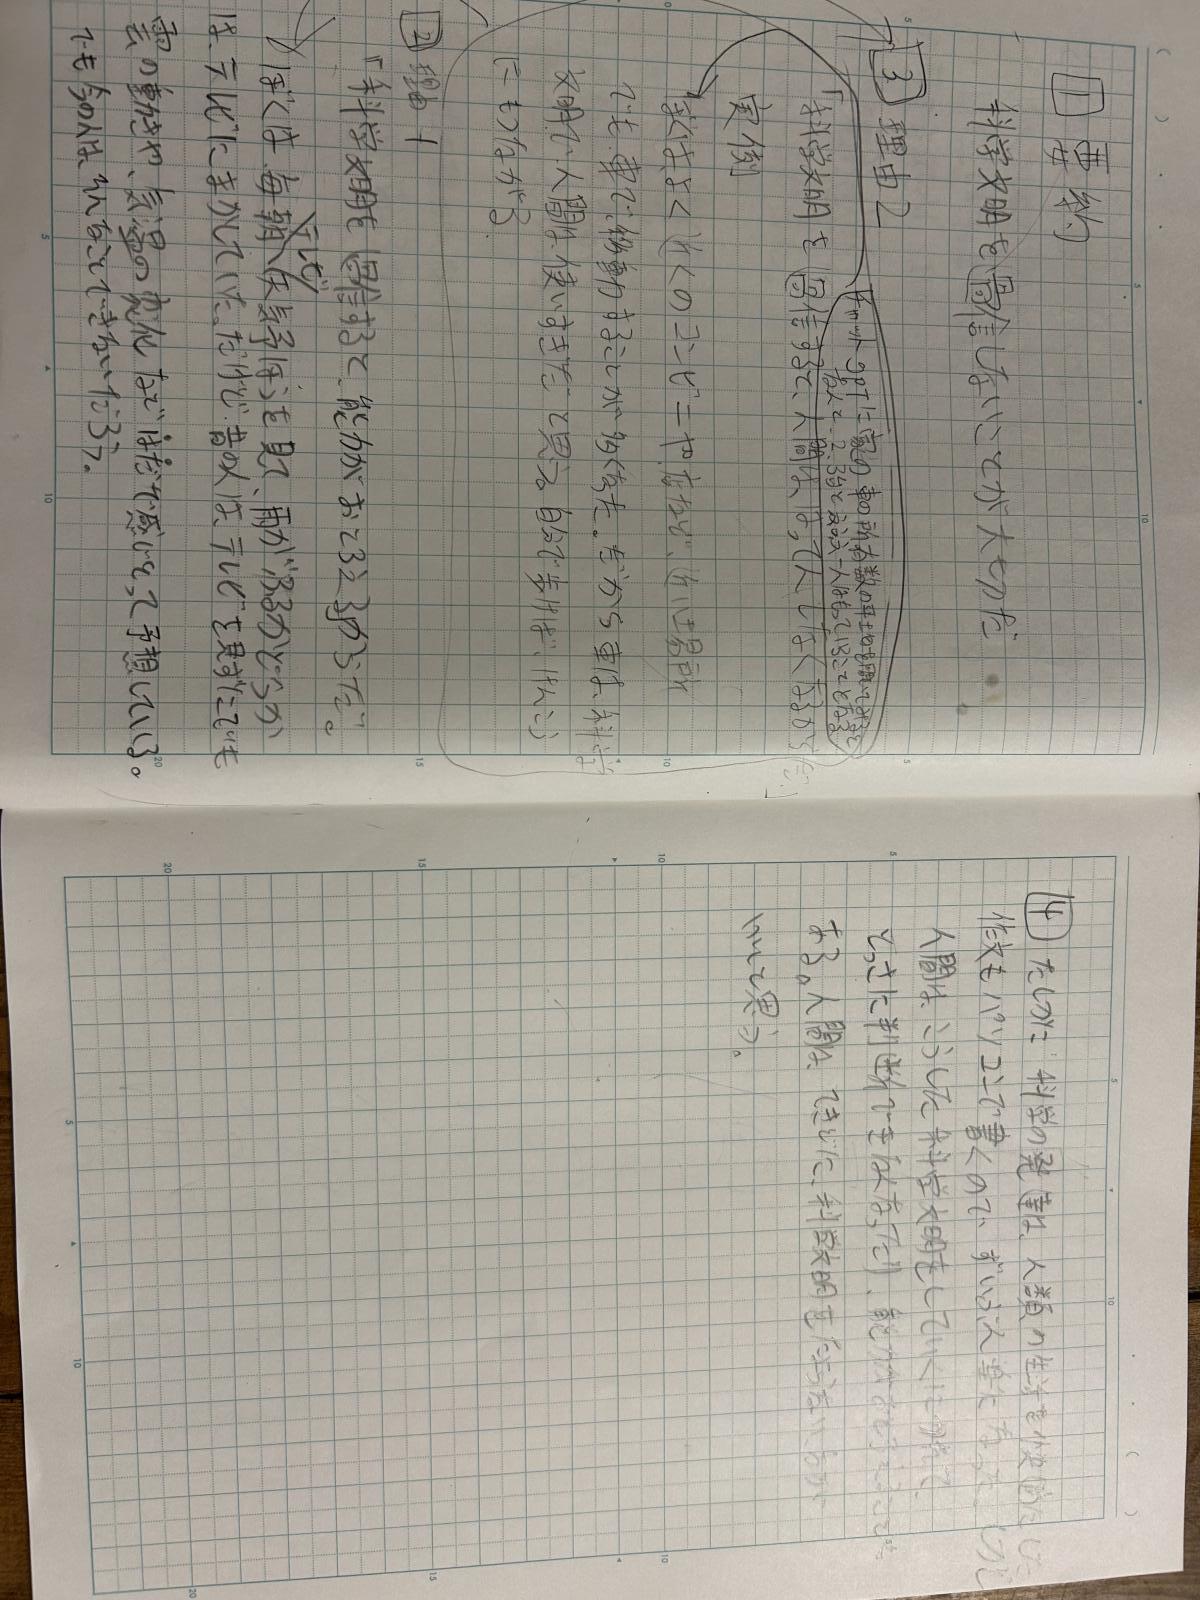 1 要約
科学文明を過信しないことが大切だ
3 理由2
「科学文明を過信すると、人間は
ネットGPTに家の車の所有数の平均を聞いてみると
答えは2.3台と
実例
家族はよく近くのコンビニや、店など、近い場所
でも、車で移動することが多くなった。だから車は、科学
文明で、人間は使いすぎだと思う。自分で歩けば、けんこう
にもつながる。
2 理由1
「科学文明を過信すると、能力がおとろえるからだ」。
テレビで
ぼくは、毎朝、天気予報を見て、雨がふるかどうか
は、テレビにまかせていた。だけど、昔の人は、テレビを見ずにでも
雲の動きや、気温の変化などはだで感じとって予想している。
でも今の人は、それをとてもできないだろう。
4 たしかに、科学の発達は、人類の生活を快適にした
作文もパソコンで書くので、ずいぶん楽になった。しかし
人間は、こうした科学文明をしていくにつれて、
とっさに判断できなくなったり、能力がおとろえることも
ある。人間は、できるだけ科学文明を使わないほうが
いいと思う。